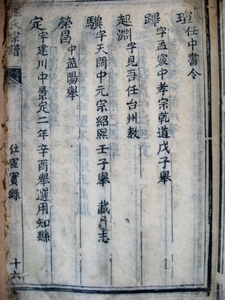 任中書令
字孟寰中孝宗乾道戊子舉
起淵
字見吾任台州教
驥
字天閑中元宗紹熙壬子舉 載於志
榮昌
中益陽舉
定
字建川中景定二年辛酉舉選用知縣
氏宗譜
仕宦實錄
十六